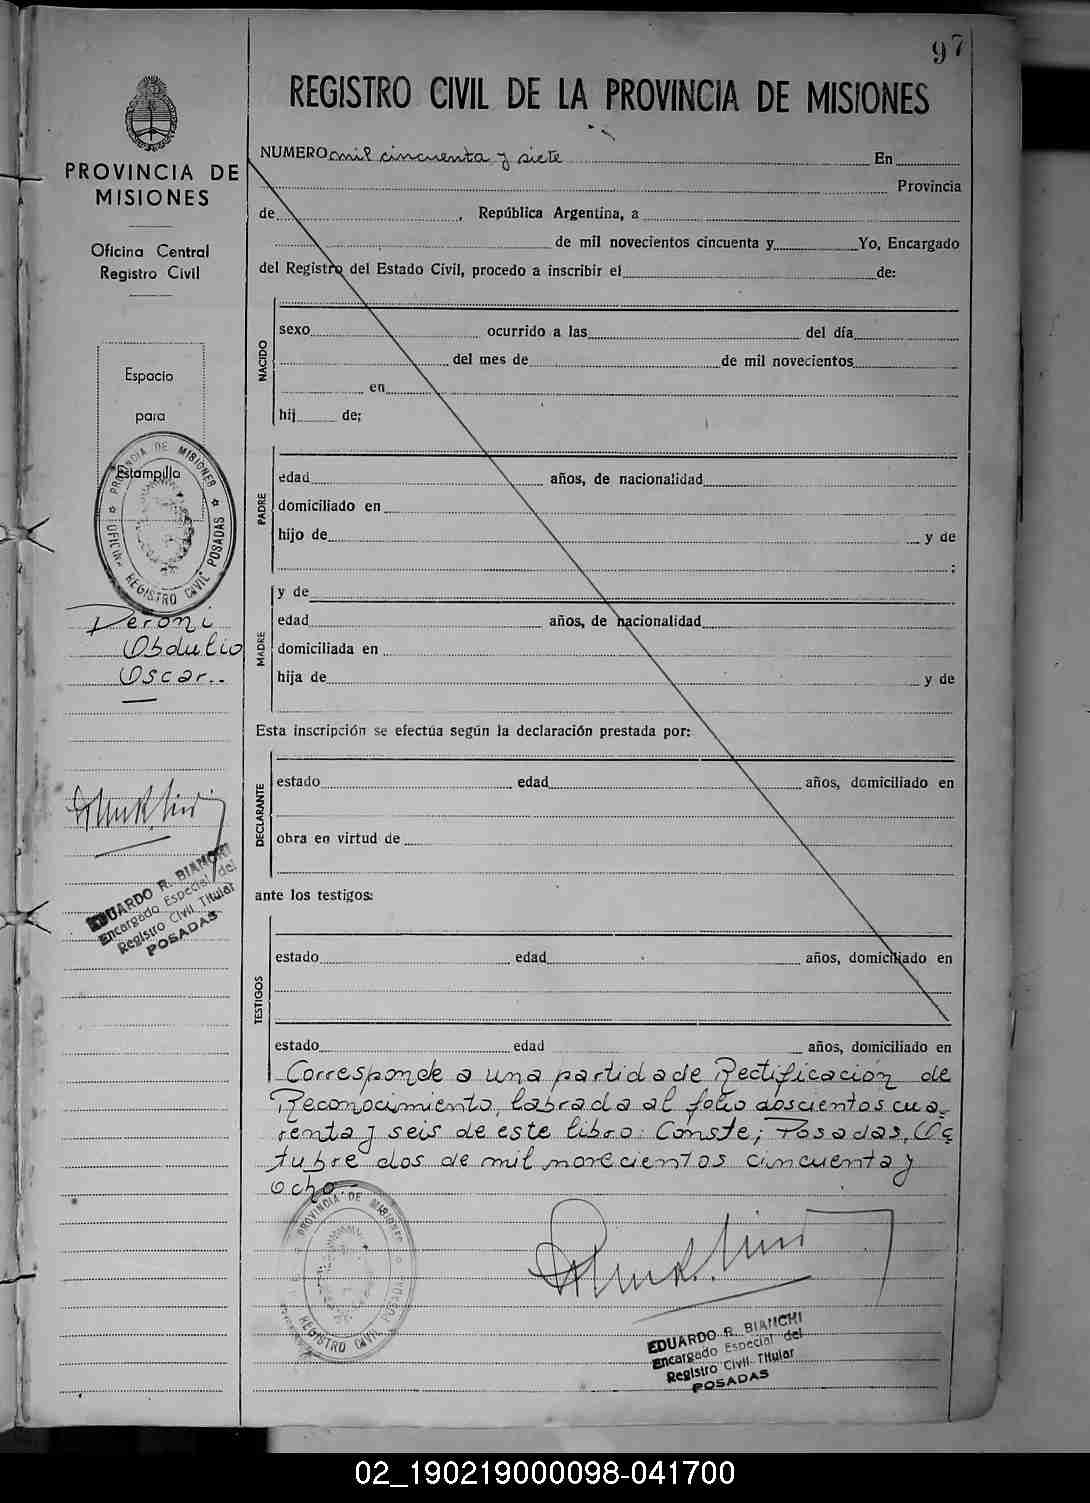 97
REGISTRO CIVIL DE LA PROVINCIA DE MISIONES
PROVINCIA DE
MISIONES
Oficina Central
Registro Civil
Espacio
para
Estampilla
PROVINCIA DE MISIONES
OFICINA REGISTRO CIVIL POSADAS
Peroni
Obdulio
Oscar..
EDUARDO R. BIANCHI
Encargado Especial del
Registro Civil Titular
POSADAS
NUMERO mil cincuenta y siete En
Provincia
de , República Argentina, a
de mil novecientos cincuenta y Yo, Encargado
del Registro del Estado Civil, procedo a inscribir el de:
NACIDO
sexo ocurrido a las del día
del mes de de mil novecientos
en
hij de;
PADRE
edad años, de nacionalidad
domiciliado en
hijo de y de
;
y de
MADRE
edad años, de nacionalidad
domiciliada en
hija de y de
Esta inscripción se efectúa según la declaración prestada por:
DECLARANTE
estado edad años, domiciliado en
obra en virtud de
ante los testigos:
TESTIGOS
estado edad años, domiciliado en
estado edad años, domiciliado en
Corresponde a una partida de Rectificación de
Reconocimiento, labrada al folio doscientos cua-
renta y seis de este libro: Conste; Posadas, Oc
tubre dos de mil novecientos cincuenta y
ocho
PROVINCIA DE MISIONES
REGISTRO CIVIL POSADAS
EDUARDO R. BIANCHI
Encargado Especial del
Registro Civil Titular
POSADAS
02_190219000098-041700